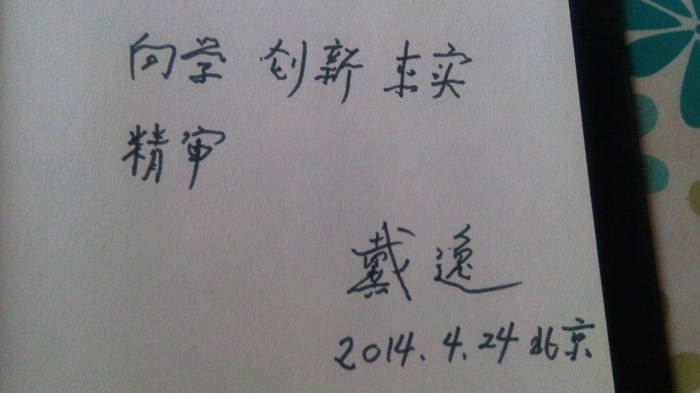 向学 创新 求实
精审
戴逸
2014.4.24 北京